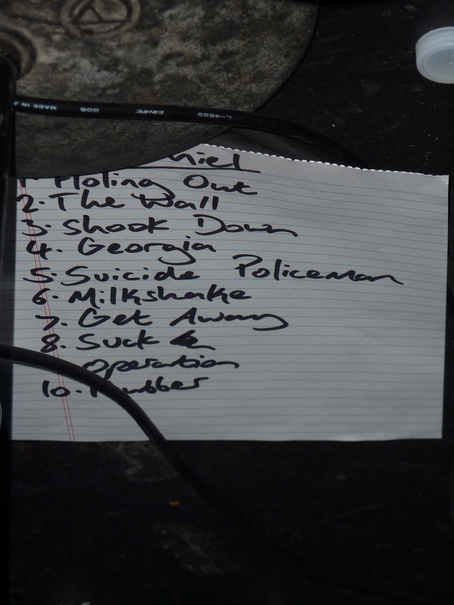 MADE IN J
niel
Holing Out
2. The Wall
3. Shook Down
4. Georgia
5. Suicide Policeman
6. Milkshake
7. Get Away
8. Suck
operation
10. Rubber